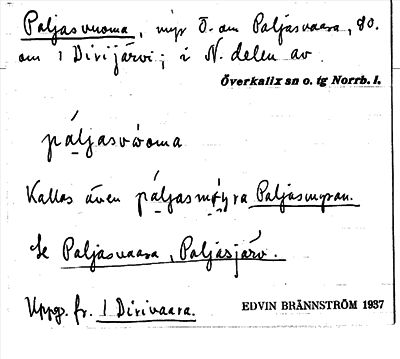 Paljasvuoma, myr Ö. om Paljasvaara, SO.
om 1 Dirijärvi; i N. delen av
Överkalix sn o. tg Norrb. l.
páljasvùoma
Kallas även páljasmöyra Paljasmyran.
Se Paljasvaara, Paljasjärv.
Uppg. fr. 1 Dirivaara.
EDVIN BRÄNNSTRÖM 1937